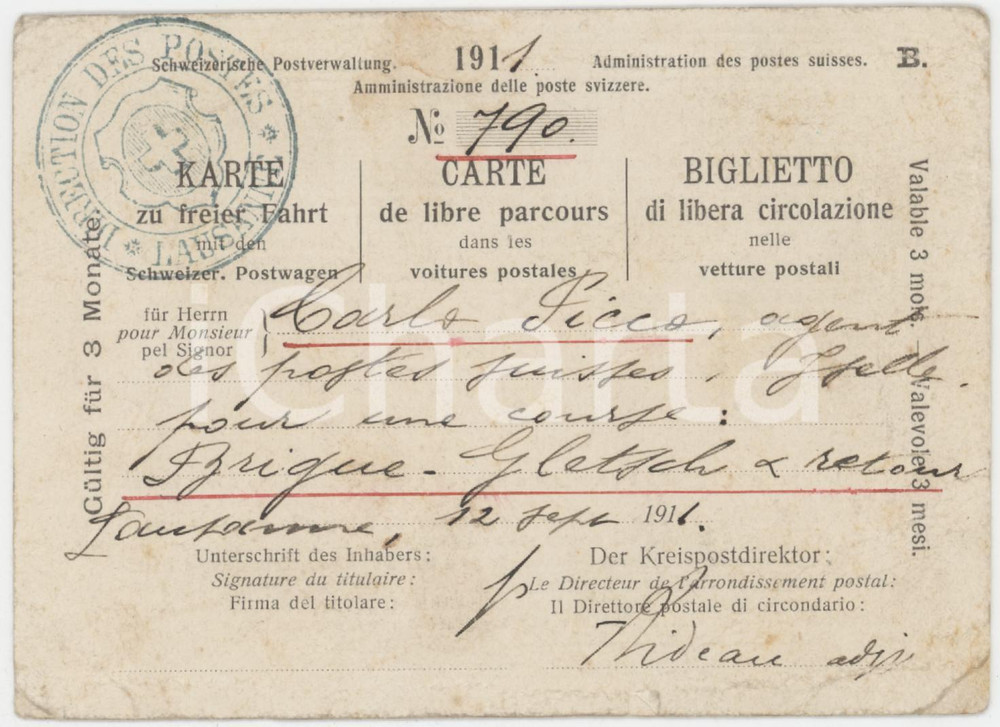 DIRECTION DES POSTES * LAUSANNE *
Schweizerische Postverwaltung. 1911. Administration des postes suisses. B.
Amministrazione delle poste svizzere.
No 790.
KARTE CARTE BIGLIETTO
zu freier Fahrt de libre parcours di libera circolazione
mit den dans les nelle
Schweizer. Postwagen voitures postales vetture postali
für Herrn
pour Monsieur
pel Signor
Carlo Picco, agent
des postes suisses, Iselle.
pour une course:
Brigue - Gletsch & retour
Lausanne, 12 sept 1911.
Unterschrift des Inhabers: Der Kreispostdirektor:
Signature du titulaire: p Le Directeur de l'arrondissement postal:
Firma del titolare: Il Direttore postale di circondario:
adj.
Gültig für 3 Monate.
Valable 3 mois.
Valevole 3 mesi.
iCharta